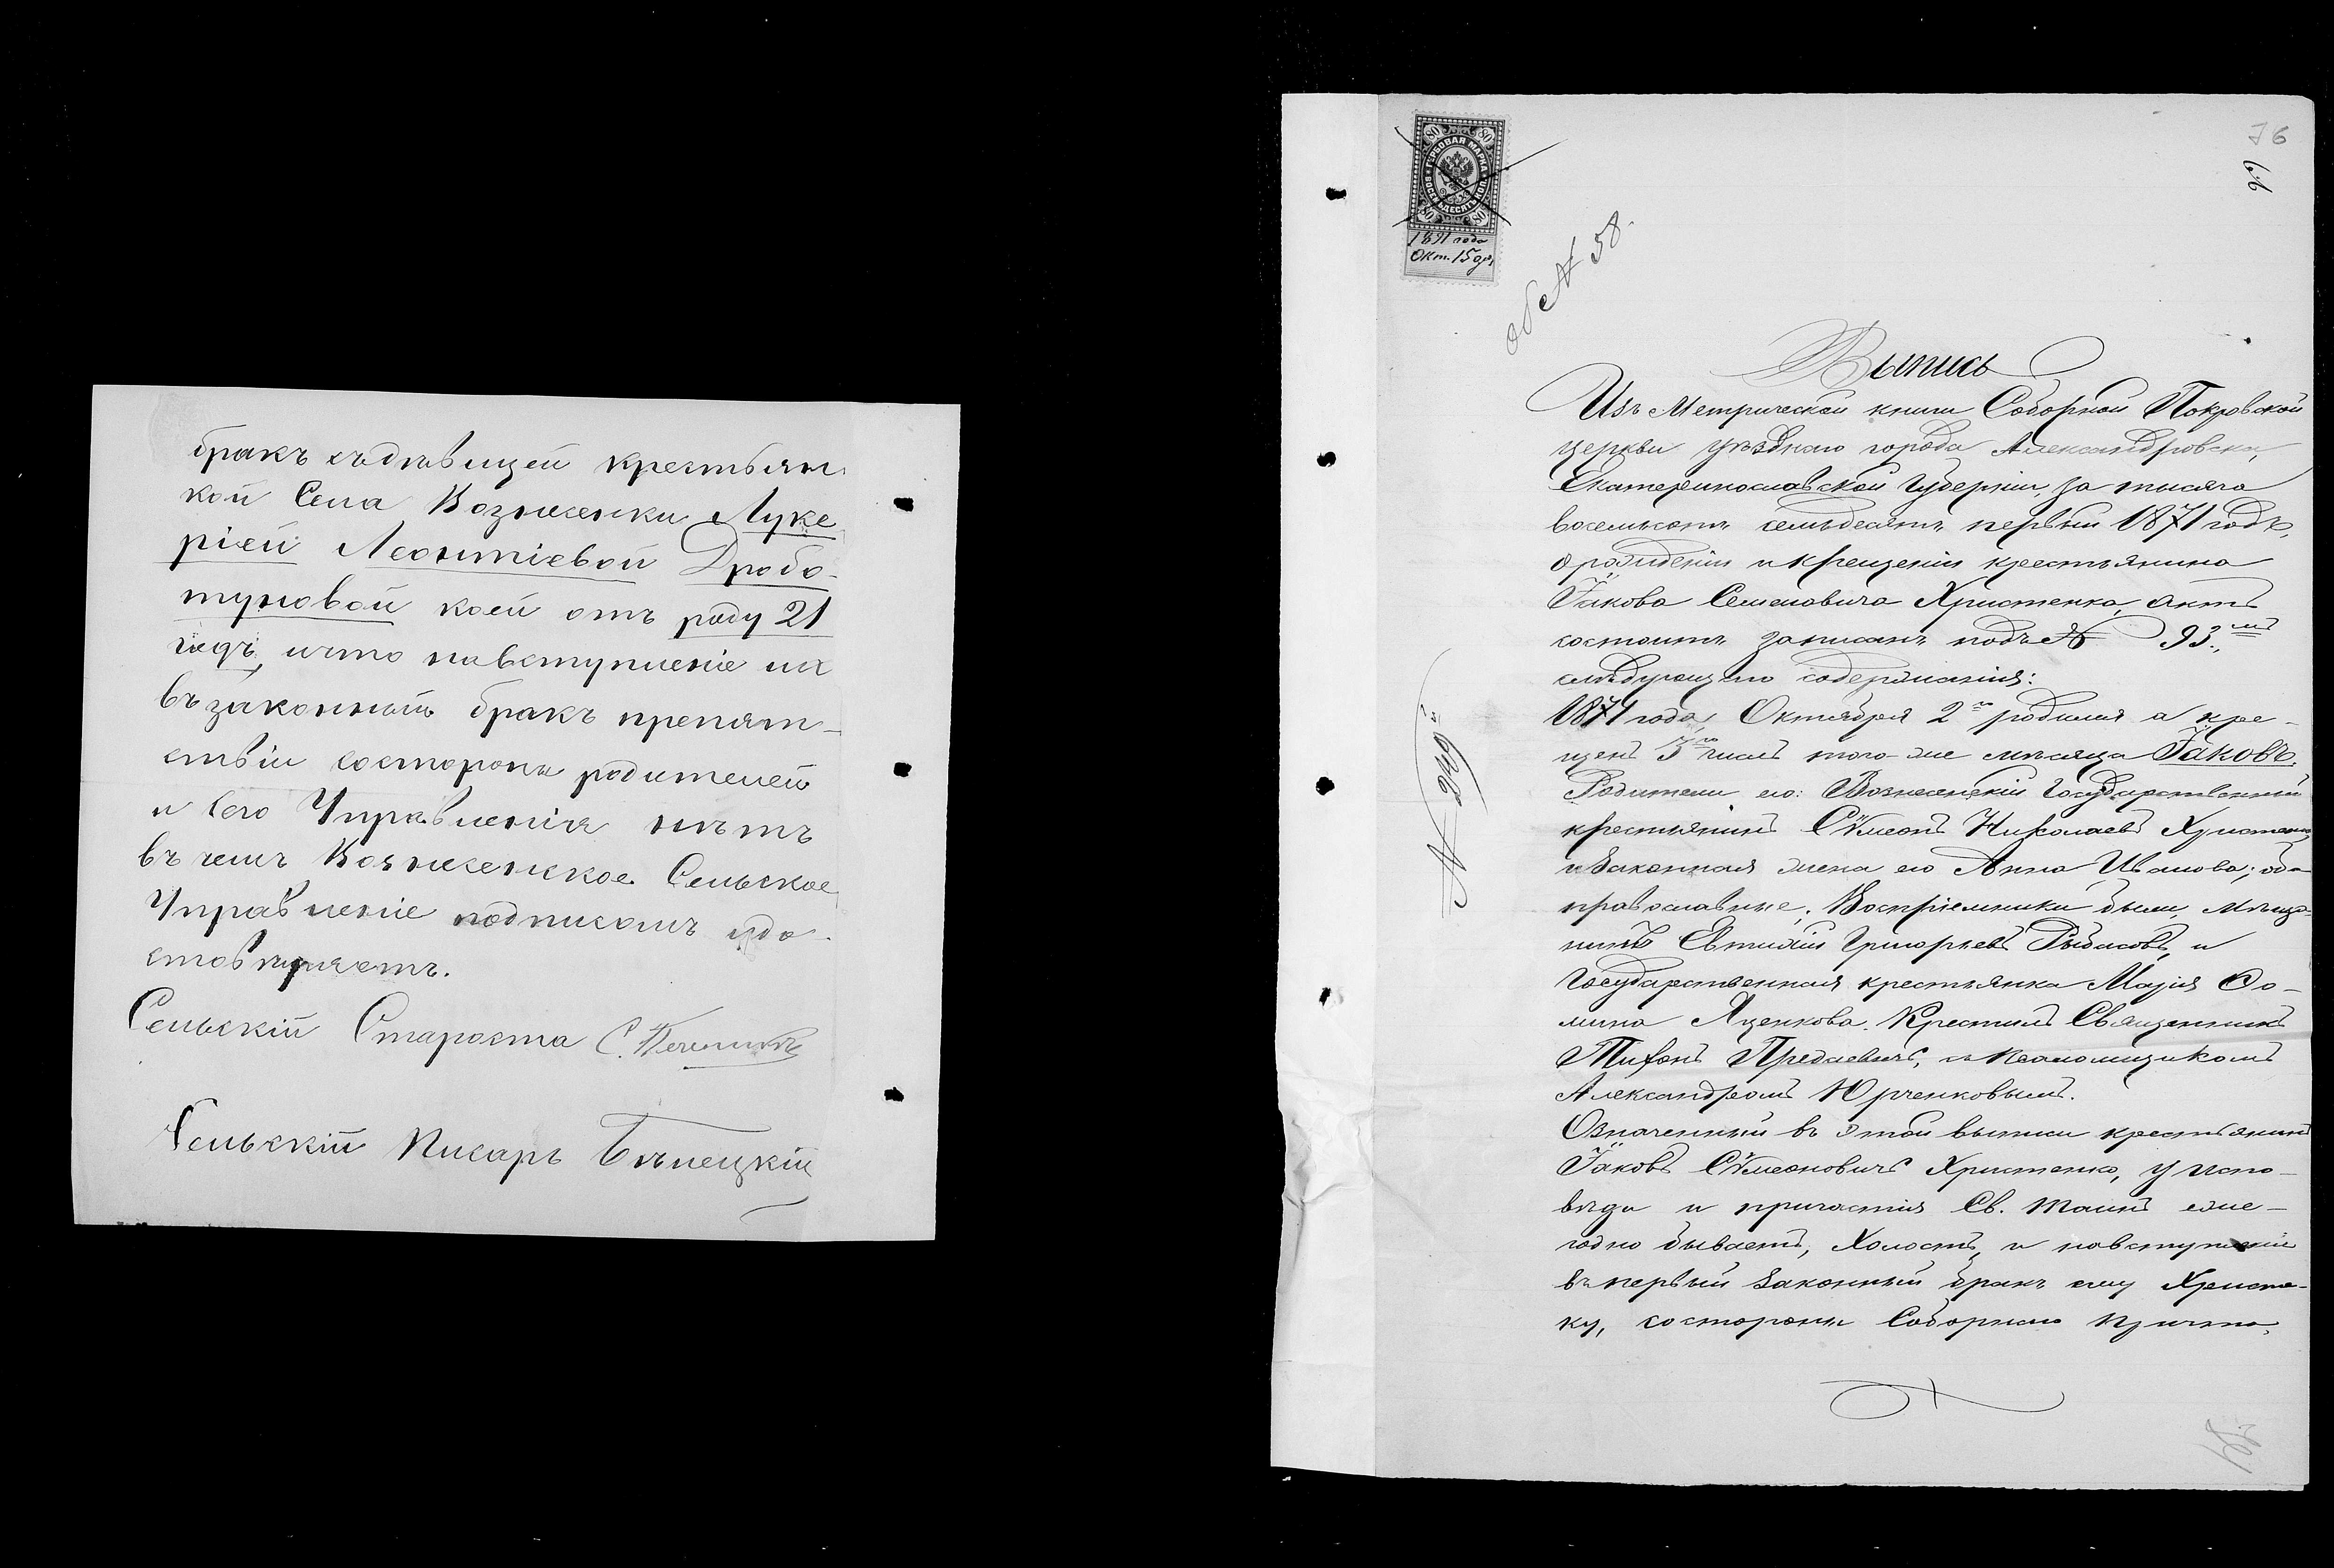 бракъ съдѣвицей крестьян
кой Села Вознесенки Луке
ріей Леонтіевой Дробо-
туновой коей отъ роду 21
годъ, ичто навступленіе их
въ законный бракъ препят-
ствій состороны родителей
и Сего Управленія нѣтъ
въ чемъ Вознесенское Сельское
Управленіе подписомъ удо-
стовѣряетъ.
Сельскій Староста
Сельскій Писарь Бѣлецкій
76
80 80
ГЕРБОВАЯ МАРКА
ВОСЕМЬДЕСЯТЪ КОП.
80 80
1891 года
Окт. 15 дня
об. № 58.
Выпись
Изъ Метрической книги Соборной Покровской
церкви уѣзднаго города Александровска,
Екатеринославской Губерніи, за тысяча
восемьсотъ семьдесятъ первый 1871 годъ,
о рожденіи и крещеніи крестьянина
Іакова Семеновича Христенко, актъ
состоитъ записанъ подъ № 93.мъ
слѣдующаго содержанія:
1871 года, Октября 2го родился а кре-
щенъ 3го числъ того-же мѣсяца Іаковъ.
Родители его: Вознесенскій Государственный
крестьянинъ Сѵмеонъ Николаевъ Христенко
и законная жена его Анна Иванова; оба
православные. Воспріемники были, мѣща-
нинъ Евтихій Григорьевъ Рыбасовъ, и
Государственная крестьянка Марія Ѳо-
мина Яценкова. Крестилъ Священникъ
съ псаломщикомъ
Александромъ Юрченковымъ.
Означенный въ этой выписи крестьянинъ
Іаковъ Сѵмеоновичъ Христенко, у испо-
вѣди и причастія Св. Таинъ еже-
годно бываетъ, Холостъ, и навступленіе
въ первый законный бракъ ему Христен-
ку, состороны Соборнаго Причта,